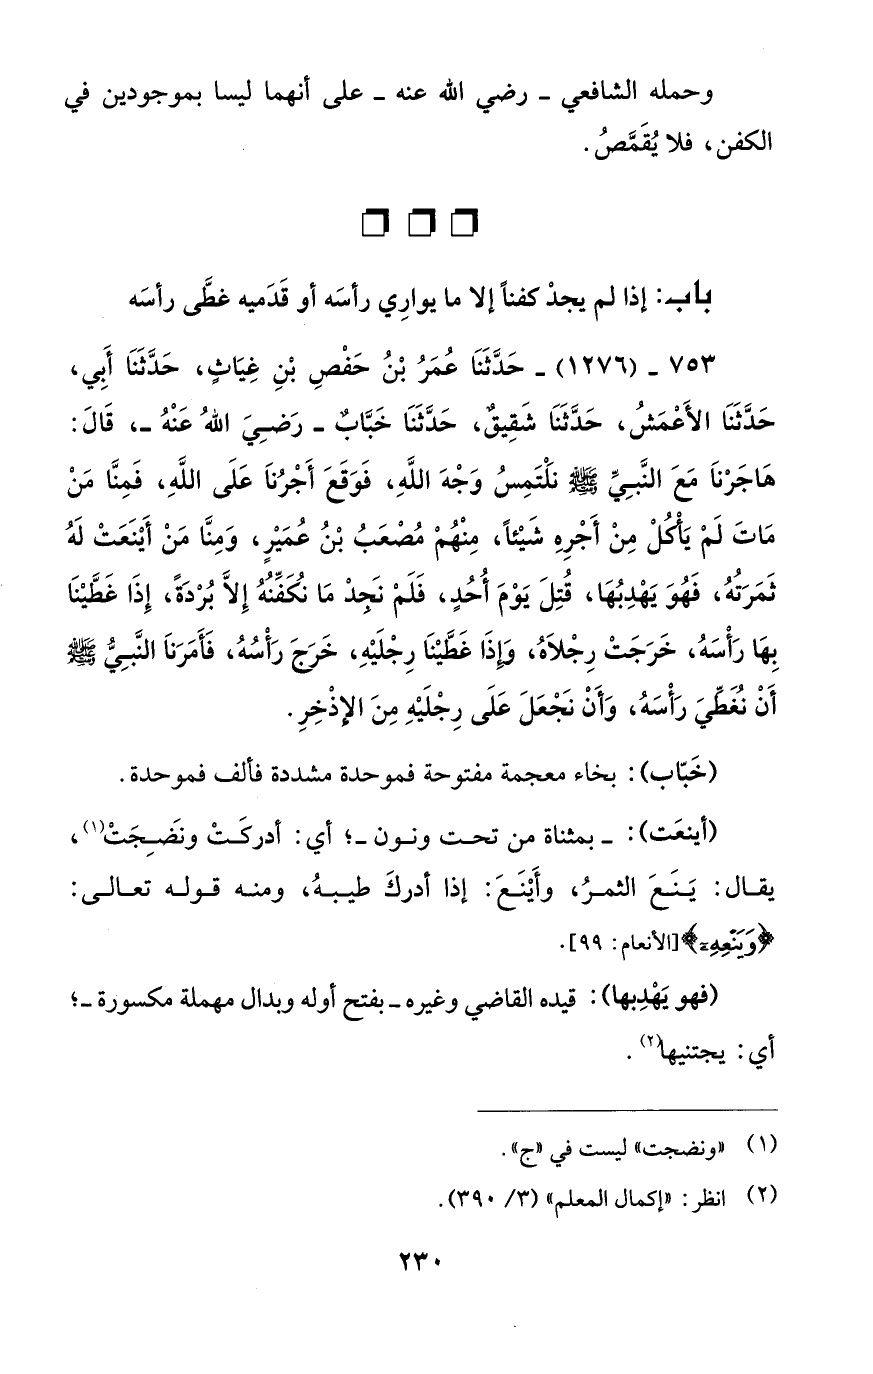 وحمله الشافعي ـ رضي الله عنه ـ على أنهما ليسا بموجودين في
الكفن، فلا يُقَمَّصُ.
باب: إذا لم يجدْ كفناً إلا ما يواري رأسَه أو قَدَميه غطَّى رأسَه
٧٥٣ ـ (١٢٧٦) ـ حَدَّثَنَا عُمَرُ بْنُ حَفْصِ بْنِ غِيَاثٍ، حَدَّثَنَا أَبِي،
حَدَّثَنَا الأَعْمَشُ، حَدَّثَنَا شَقِيقٌ، حَدَّثَنَا خَبَّابٌ ـ رَضِيَ اللهُ عَنْهُ ـ، قَالَ:
هَاجَرْنَا مَعَ النَّبِيِّ ﷺ نَلْتَمِسُ وَجْهَ اللَّهِ، فَوَقَعَ أَجْرُنَا عَلَى اللَّهِ، فَمِنَّا مَنْ
مَاتَ لَمْ يَأْكُلْ مِنْ أَجْرِهِ شَيْئاً، مِنْهُمْ مُصْعَبُ بْنُ عُمَيْرٍ، وَمِنَّا مَنْ أَيْنَعَتْ لَهُ
ثَمَرَتُهُ، فَهُوَ يَهْدِبُهَا، قُتِلَ يَوْمَ أُحُدٍ، فَلَمْ نَجِدْ مَا نُكَفِّنُهُ إِلاَّ بُرْدَةً، إِذَا غَطَّيْنَا
بِهَا رَأْسَهُ، خَرَجَتْ رِجْلاَهُ، وَإِذَا غَطَّيْنَا رِجْلَيْهِ، خَرَجَ رَأْسُهُ، فَأَمَرَنَا النَّبِيُّ ﷺ
أَنْ نُغَطِّيَ رَأْسَهُ، وَأَنْ نَجْعَلَ عَلَى رِجْلَيْهِ مِنَ الإِذْخِرِ.
(خَبّاب): بخاء معجمة مفتوحة فموحدة مشددة فألف فموحدة.
(أينعَت): ـ بمثناة من تحت ونون ـ؛ أي: أدركَتْ ونَضِجَتْ(١)،
يقال: يَنَعَ الثمرُ، وأَيْنَعَ: إذا أدركَ طيبهُ، ومنه قوله تعالى:
﴿وَيَنْعِهِۦٓ﴾[الأنعام: ٩٩].
(فهو يَهْدِبها): قيده القاضي وغيره ـ بفتح أوله وبدال مهملة مكسورة ـ؛
أي: يجتنيها(٢).
(١) «ونضجت» ليست في «ج».
(٢) انظر: «إكمال المعلم» (٣/ ٣٩٠).
٢٣٠